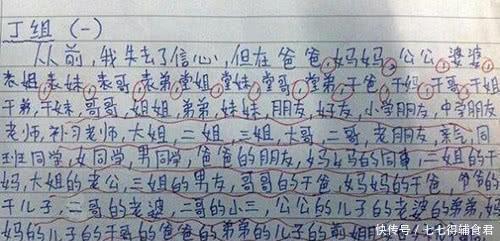 丁组 (一)
从前,我失去了信心,但在爸爸,妈妈,公公,婆婆
表姐,表妹,表哥,表弟,堂姐,堂妹,堂哥,堂弟,干爸,干妈,干哥,干姐
干弟,干妹,哥哥,姐姐,弟弟,妹妹,朋友,好友,小学朋友,中学朋友
老师,补习老师,大姐,二姐,三姐,大哥,二哥,老朋友,亲戚,同
班同学,女同学,男同学,爸爸的朋友,妈妈的同事,二姐的干
妈,大姐的老公,三姐的男友,哥哥的干爸,妈妈的干爸,爷爷的
干儿子,二哥的老婆,二哥的小三,公公的儿子的老婆的弟弟,妈
妈的儿子的爸爸的弟弟的儿子的前姐
快传号/七七得辅食君